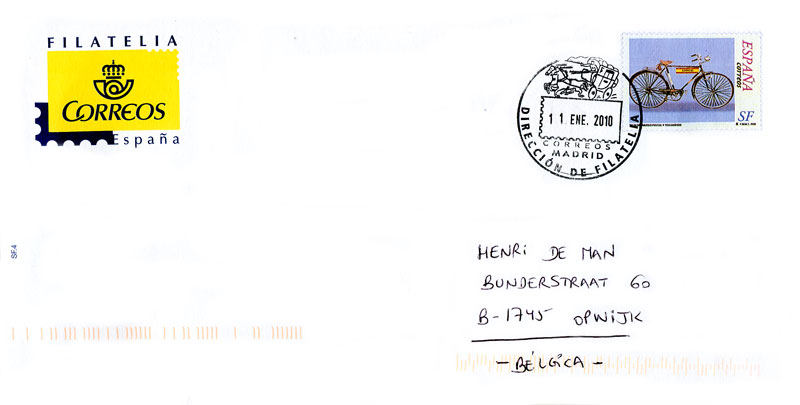 FILATELIA
CORREOS
España
DIRECCIÓN DE FILATELIA
11 ENE. 2010
CORREOS
MADRID
ESPAÑA
CORREOS
SF
SF.4
HENRI DE MAN
BUNDERSTRAAT 60
B-1745 OPWIJK
- BÉLGICA -